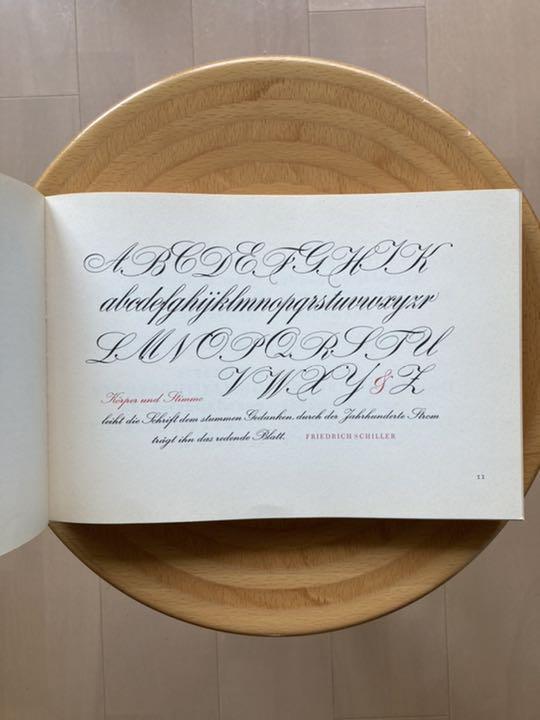 ABCDEFGHIK
abcdefghijklmnopqrstuvwxyzr
LMNOPQRSTU
VWXY&Z
Körper und Stimme
leiht die Schrift dem stummen Gedanken, durch der Jahrhunderte Strom
trägt ihn das redende Blatt. FRIEDRICH SCHILLER
11